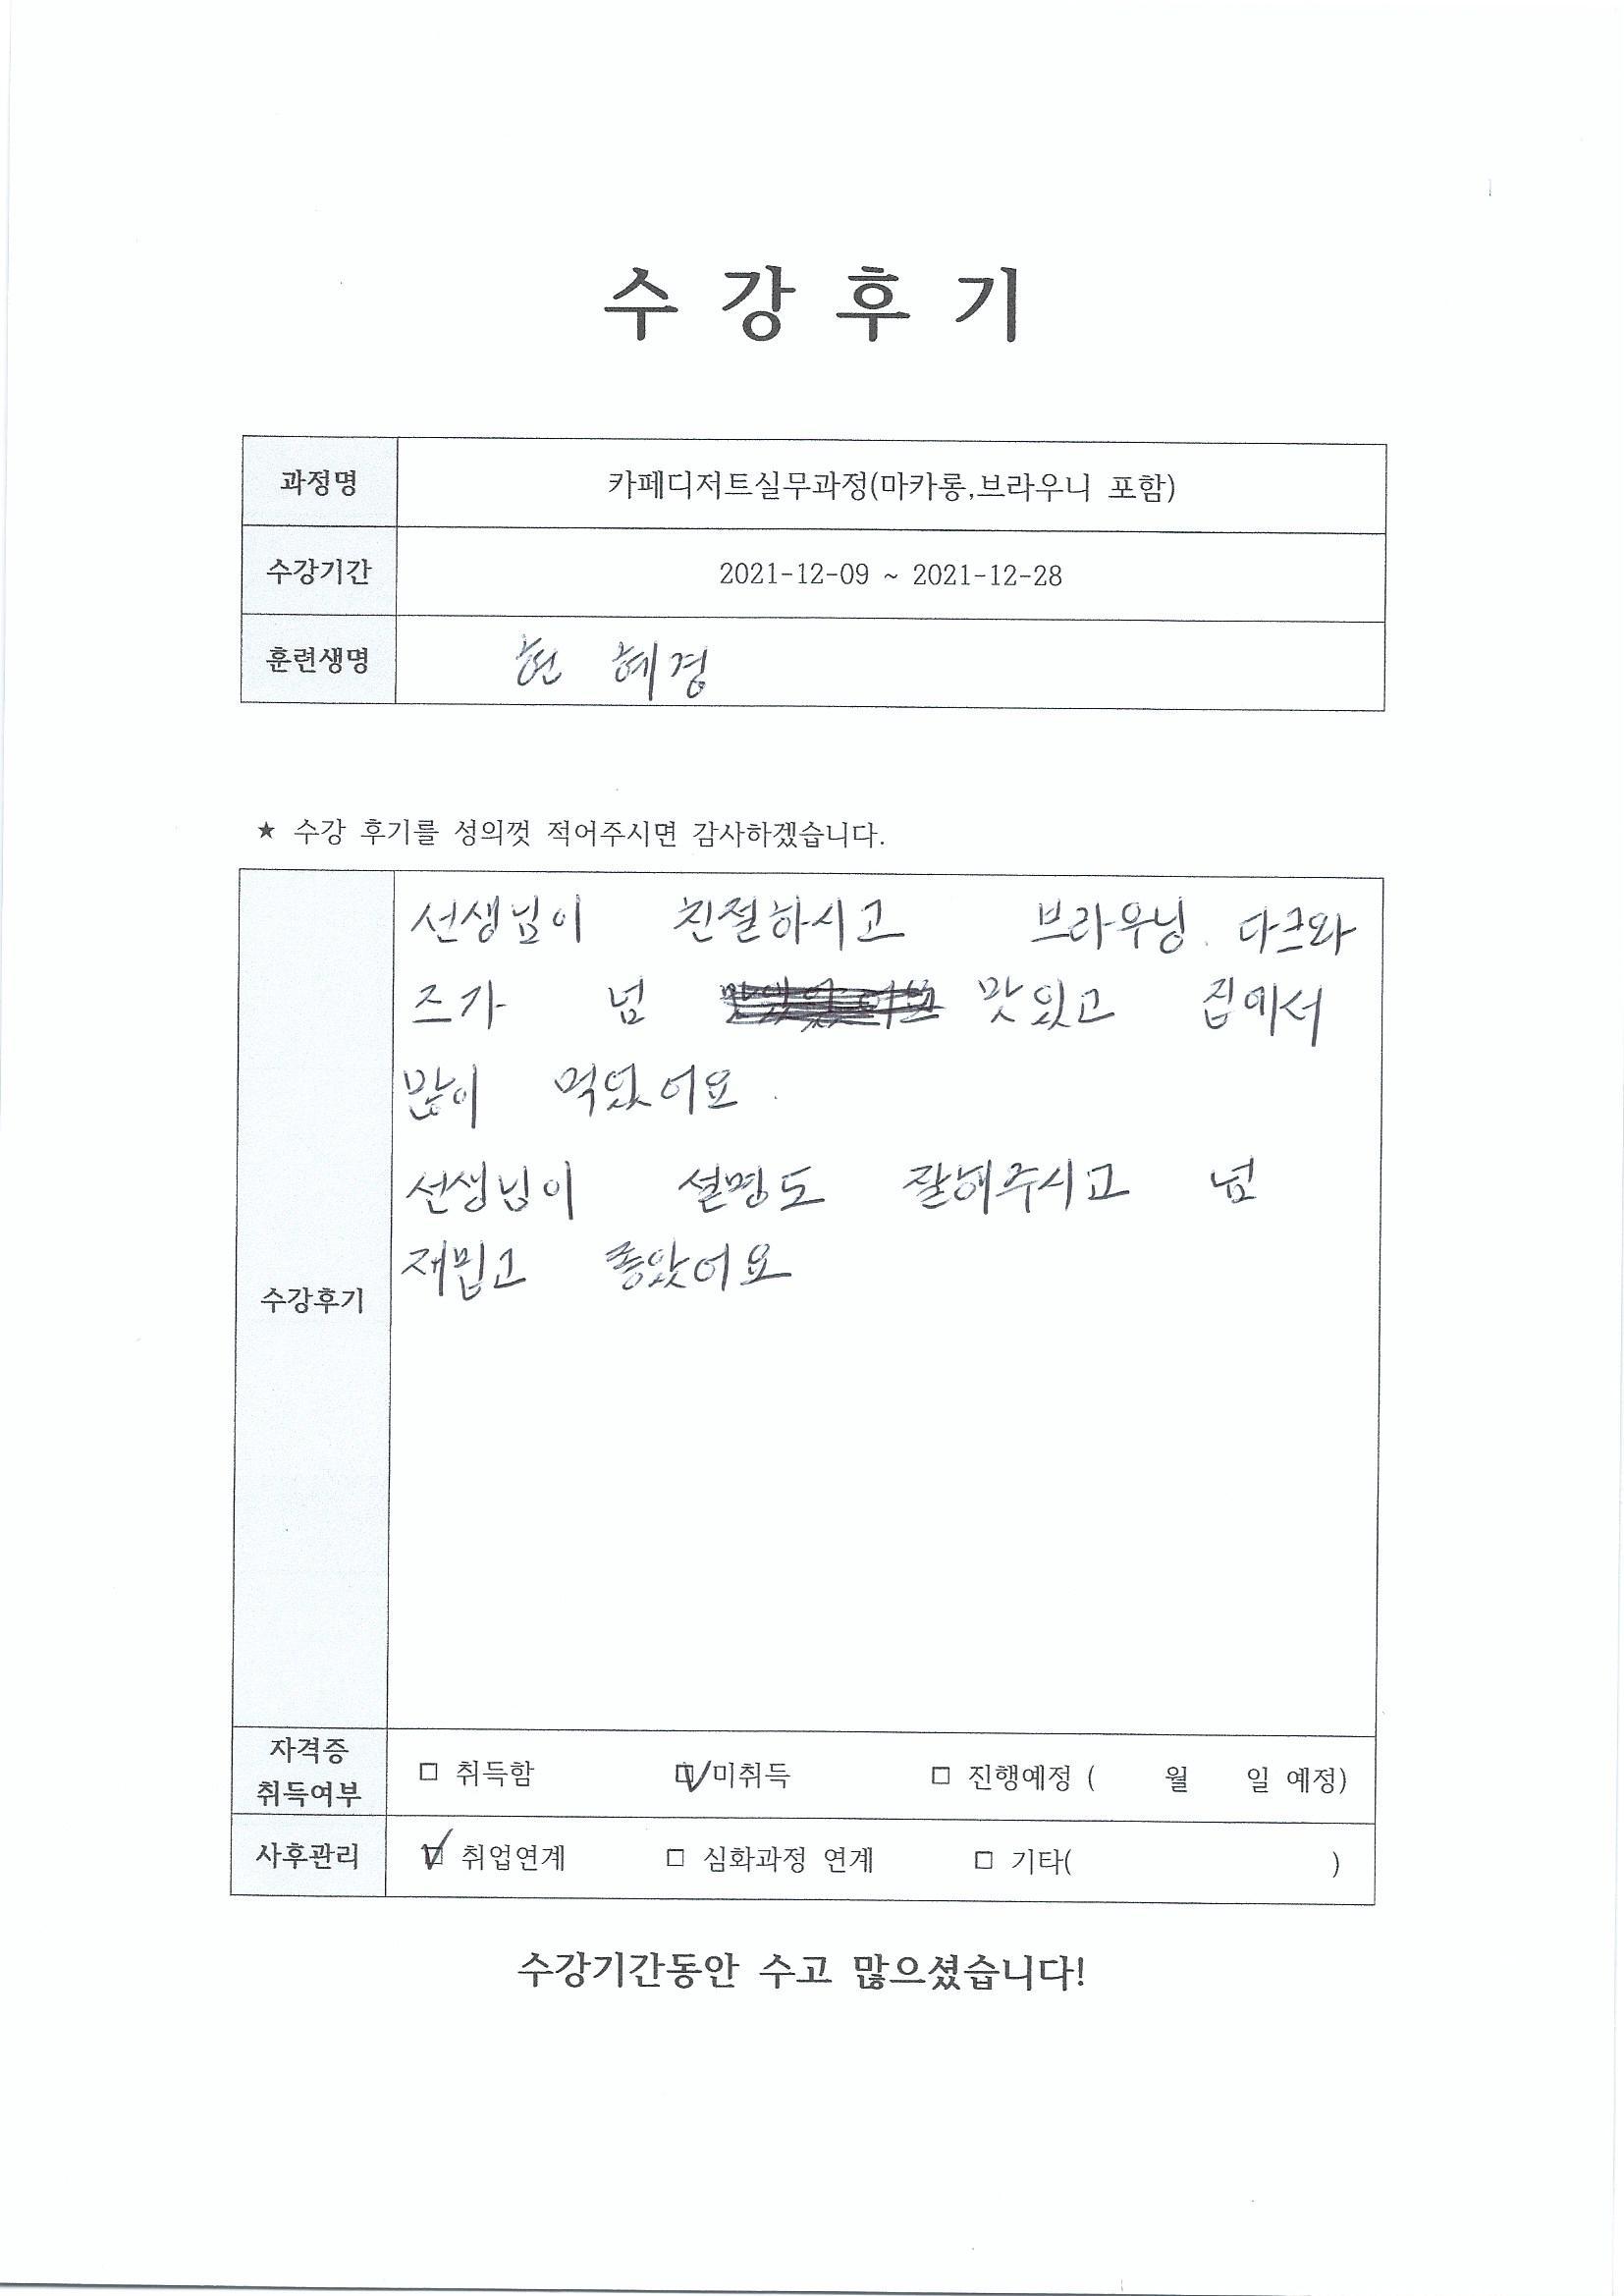 수 강 후 기
과정명 카페디저트실무과정(마카롱,브라우니 포함)
수강기간 2021-12-09 ~ 2021-12-28
훈련생명 현 혜경
★ 수강 후기를 성의껏 적어주시면 감사하겠습니다.
선생님이 친절하시고 브라우닝. 다크와
즈가 넘 맛있고 집에서
많이 먹었어요.
선생님이 설명도 잘해주시고 넘
재밉고 좋았어요
수강후기
자격증
취득여부
□ 취득함 ☑ 미취득 □ 진행예정 ( 월 일 예정)
사후관리 ☑ 취업연계 □ 심화과정 연계 □ 기타( )
수강기간동안 수고 많으셨습니다!